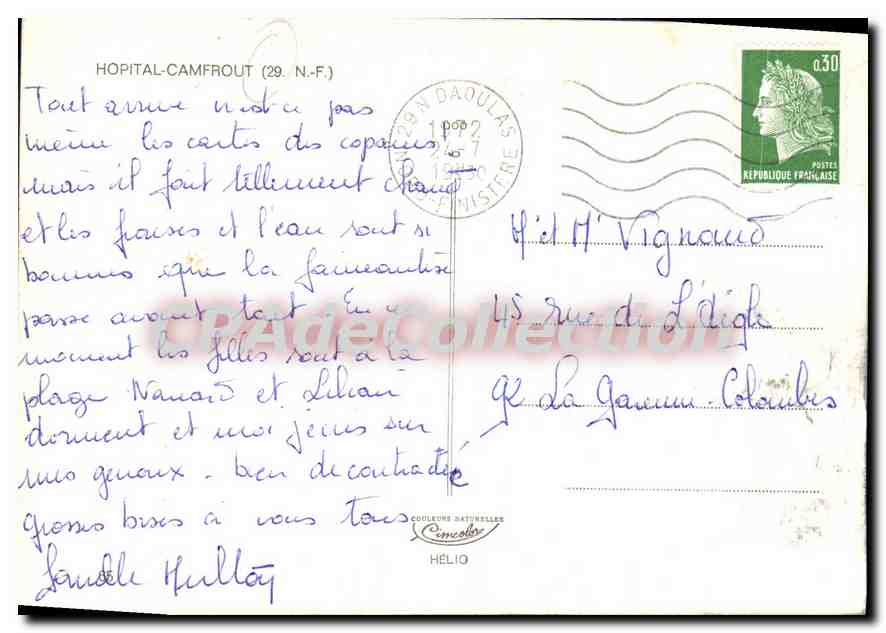 HOPITAL-CAMFROUT (29. N.-F.)
Tout arrive n'est-ce pas
même les cartes des copains
mais il fait tellement chaud
et les fraises et l'eau sont si
bonnes que la faineantise
passe avant tout. En ce
moment les filles sont à la
plage Nanard et Lilian
dorment et moi j'écris sur
mes genoux - bien décontracté
grosses bises à vous tous
29 N DAOULAS
24-7
1972
NORD-FINISTERE
0,30
POSTES
REPUBLIQUE FRANÇAISE
Mr et Me Vignaud
45 rue de L'Aigle
92 La Garenne-Colombes
COULEURS NATURELLES
Cimcolor
HÉLIO
CPAdeCollection